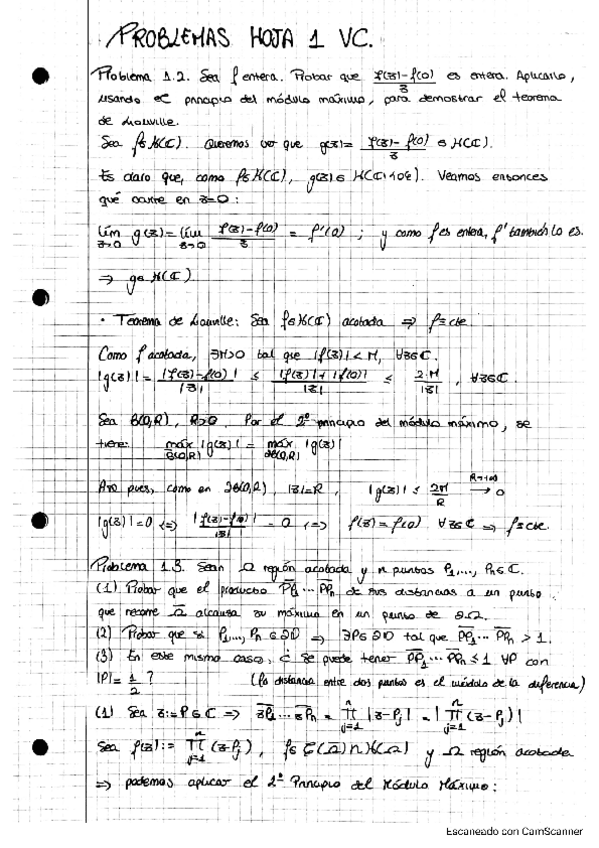 PROBLEMAS HOJA 1 VC.
Problema 1.2. Sea f entera. Probar que (f(z)-f(0))/z es entera. Aplicarlo,
usando el principio del módulo máximo, para demostrar el teorema
de Liouville.
Sea f∈H(ℂ). Queremos ver que g(z)= (f(z)-f(0))/z ∈ H(ℂ).
Es claro que, como f∈H(ℂ), g(z)∈H(ℂ\{0}). Veamos entonces
qué ocurre en z=0:
lim_{z→0} g(z) = lim_{z→0} (f(z)-f(0))/z = f'(0) ; y como f es entera, f' también lo es.
⇒ g∈H(ℂ)
· Teorema de Liouville: Sea f∈H(ℂ) acotada ⇒ f≡cte
Como f acotada, ∃M>0 tal que |f(z)|<M, ∀z∈ℂ.
|g(z)| = |f(z)-f(0)|/|z| ≤ (|f(z)|+|f(0)|)/|z| ≤ 2·M/|z| , ∀z∈ℂ.
Sea B(0,R), R>0. Por el 2º principio del módulo máximo, se
tiene: máx_{B(0,R)} |g(z)| = máx_{∂B(0,R)} |g(z)|
Así pues, como en ∂B(0,R), |z|=R, |g(z)| ≤ 2M/R →^{R→+∞} 0
|g(z)|=0 ⇔ |f(z)-f(0)|/|z| = 0 ⇔ f(z)=f(0) ∀z∈ℂ ⇒ f≡cte.
Problema 1.3. Sean Ω región acotada y n puntos P₁,..., Pₙ∈ℂ.
(1) Probar que el producto PP₁···PPₙ de sus distancias a un punto
que recorre Ω̄ alcanza su máximo en un punto de ∂Ω.
(2) Probar que si P₁,..., Pₙ∈∂D ⇒ ∃P∈∂D tal que PP₁···PPₙ > 1.
(3) En este mismo caso, ¿se puede tener PP₁···PPₙ ≤ 1 ∀P con
|P|= 1/2 ? (la distancia entre dos puntos es el módulo de la diferencia)
(1) Sea z:=P∈ℂ ⇒ zP₁···zPₙ = ∏_{j=1}^{n} |z-Pj| = |∏_{j=1}^{n} (z-Pj)|
Sea f(z):= ∏_{j=1}^{n} (z-Pj), f∈ζ(Ω̄)∩H(Ω) y Ω región acotada
⇒ podemos aplicar el 2º Principio del Módulo Máximo:
Escaneado con CamScanner